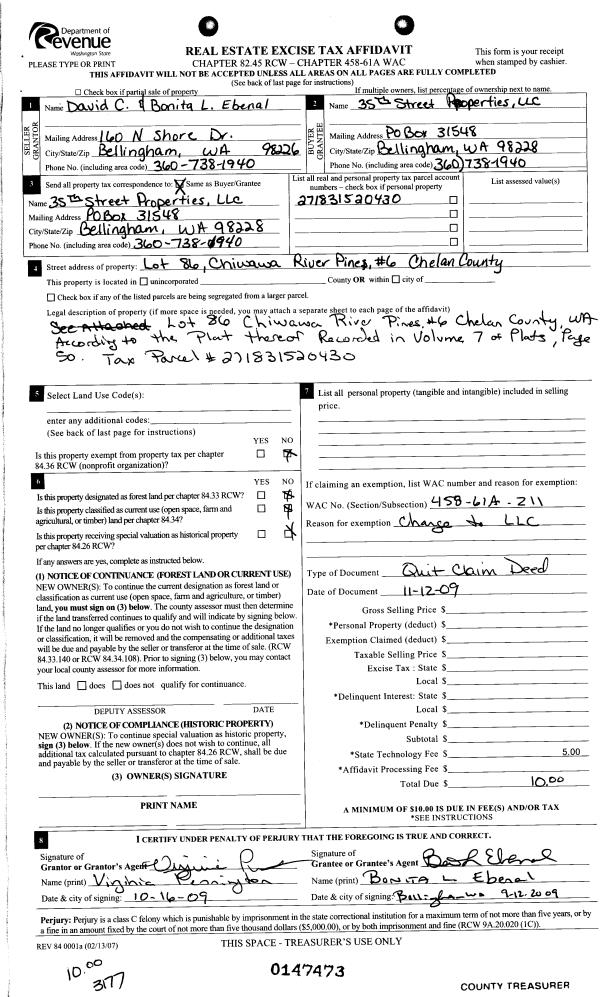 Department of
Revenue
Washington State
PLEASE TYPE OR PRINT
REAL ESTATE EXCISE TAX AFFIDAVIT
CHAPTER 82.45 RCW – CHAPTER 458-61A WAC
This form is your receipt
when stamped by cashier.
THIS AFFIDAVIT WILL NOT BE ACCEPTED UNLESS ALL AREAS ON ALL PAGES ARE FULLY COMPLETED
(See back of last page for instructions)
Check box if partial sale of property
If multiple owners, list percentage of ownership next to name.
1 Name David C. & Bonita L. Ebenal
SELLER GRANTOR
Mailing Address 160 N Shore Dr.
City/State/Zip Bellingham, WA 98226
Phone No. (including area code) 360-738-1940
2 Name 35th Street Properties, LLC
BUYER GRANTEE
Mailing Address PO Box 31548
City/State/Zip Bellingham, WA 98228
Phone No. (including area code) 360)738-1940
3 Send all property tax correspondence to: Same as Buyer/Grantee
Name 35th Street Properties, LLC
Mailing Address PO Box 31548
City/State/Zip Bellingham, WA 98228
Phone No. (including area code) 360-738-1940
List all real and personal property tax parcel account
numbers – check box if personal property
271831520430
List assessed value(s)
4 Street address of property: Lot 86, Chiwawa River Pines, #6 Chelan County
This property is located in unincorporated County OR within city of
Check box if any of the listed parcels are being segregated from a larger parcel.
Legal description of property (if more space is needed, you may attach a separate sheet to each page of the affidavit)
See Attached Lot 86 Chiwawa River Pines #6 Chelan County, WA
According to the Plat thereof Recorded in Volume 7 of Plats, Page
50. Tax Parcel # 271831520430
5 Select Land Use Code(s):
enter any additional codes:
(See back of last page for instructions)
YES NO
Is this property exempt from property tax per chapter
84.36 RCW (nonprofit organization)?
6 YES NO
Is this property designated as forest land per chapter 84.33 RCW?
Is this property classified as current use (open space, farm and
agricultural, or timber) land per chapter 84.34?
Is this property receiving special valuation as historical property
per chapter 84.26 RCW?
If any answers are yes, complete as instructed below.
(1) NOTICE OF CONTINUANCE (FOREST LAND OR CURRENT USE)
NEW OWNER(S): To continue the current designation as forest land or
classification as current use (open space, farm and agriculture, or timber)
land, you must sign on (3) below. The county assessor must then determine
if the land transferred continues to qualify and will indicate by signing below.
If the land no longer qualifies or you do not wish to continue the designation
or classification, it will be removed and the compensating or additional taxes
will be due and payable by the seller or transferor at the time of sale. (RCW
84.33.140 or RCW 84.34.108). Prior to signing (3) below, you may contact
your local county assessor for more information.
This land does does not qualify for continuance.
DEPUTY ASSESSOR DATE
(2) NOTICE OF COMPLIANCE (HISTORIC PROPERTY)
NEW OWNER(S): To continue special valuation as historic property,
sign (3) below. If the new owner(s) does not wish to continue, all
additional tax calculated pursuant to chapter 84.26 RCW, shall be due
and payable by the seller or transferor at the time of sale.
(3) OWNER(S) SIGNATURE
PRINT NAME
7 List all personal property (tangible and intangible) included in selling
price.
If claiming an exemption, list WAC number and reason for exemption:
WAC No. (Section/Subsection) 458-61A-211
Reason for exemption Change to LLC
Type of Document Quit Claim Deed
Date of Document 11-12-09
Gross Selling Price $
*Personal Property (deduct) $
Exemption Claimed (deduct) $
Taxable Selling Price $
Excise Tax : State $
Local $
*Delinquent Interest: State $
Local $
*Delinquent Penalty $
Subtotal $
*State Technology Fee $ 5.00
*Affidavit Processing Fee $
Total Due $ 10.00
A MINIMUM OF $10.00 IS DUE IN FEE(S) AND/OR TAX
*SEE INSTRUCTIONS
8 I CERTIFY UNDER PENALTY OF PERJURY THAT THE FOREGOING IS TRUE AND CORRECT.
Signature of
Grantor or Grantor's Agent
Name (print) Virginia Pennington
Date & city of signing: 10-16-09
Signature of
Grantee or Grantee's Agent
Name (print) Bonita L Ebenal
Date & city of signing: 9-12-2009
Perjury: Perjury is a class C felony which is punishable by imprisonment in the state correctional institution for a maximum term of not more than five years, or by
a fine in an amount fixed by the court of not more than five thousand dollars ($5,000.00), or by both imprisonment and fine (RCW 9A.20.020 (1C)).
REV 84 0001a (02/13/07)
THIS SPACE - TREASURER'S USE ONLY
10.00
3177
0147473
COUNTY TREASURER